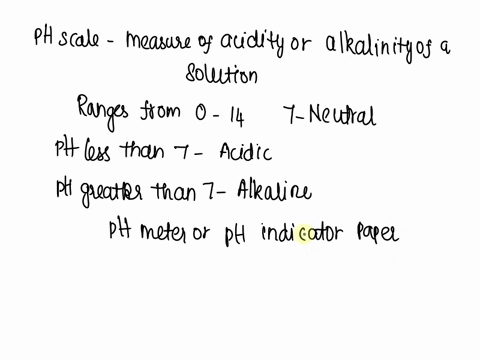 pH scale - measure of acidity or alkalinity of a
solution
Ranges from 0 - 14 7 - Neutral
pH less than 7 - Acidic
pH greater than 7 - Alkaline
pH meter or pH indicator paper